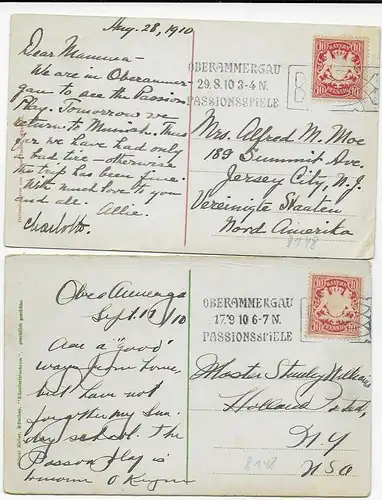 Aug. 28, 1910
Dear Mamma -
We are in Oberammer-
gau to see the Passion
Play. Tomorrow we
return to Munich. Thus
far we have had only
a bad tire - otherwise
the trip has been fine.
With much love to you
and all. Allie.
Charlotte.
OBERAMMERGAU
29.8.10 3-4 N.
PASSIONSSPIELE
BAYERN
10 PFENNIG 10
Mrs. Alfred M. Moe
189 Summit Ave.
Jersey City, N.J.
Vereinigte Staaten
Nord Amerika
8748
Sept. 17/10
Am a "good"
ways from home,
but have not
forgotten my Sun-
day school. The
Passion Play is
OBERAMMERGAU
17.9 10 6-7 N.
PASSIONSSPIELE
BAYERN
10 PFENNIG 10
Master Stanley Williams
Holland
N Y
USA
8748